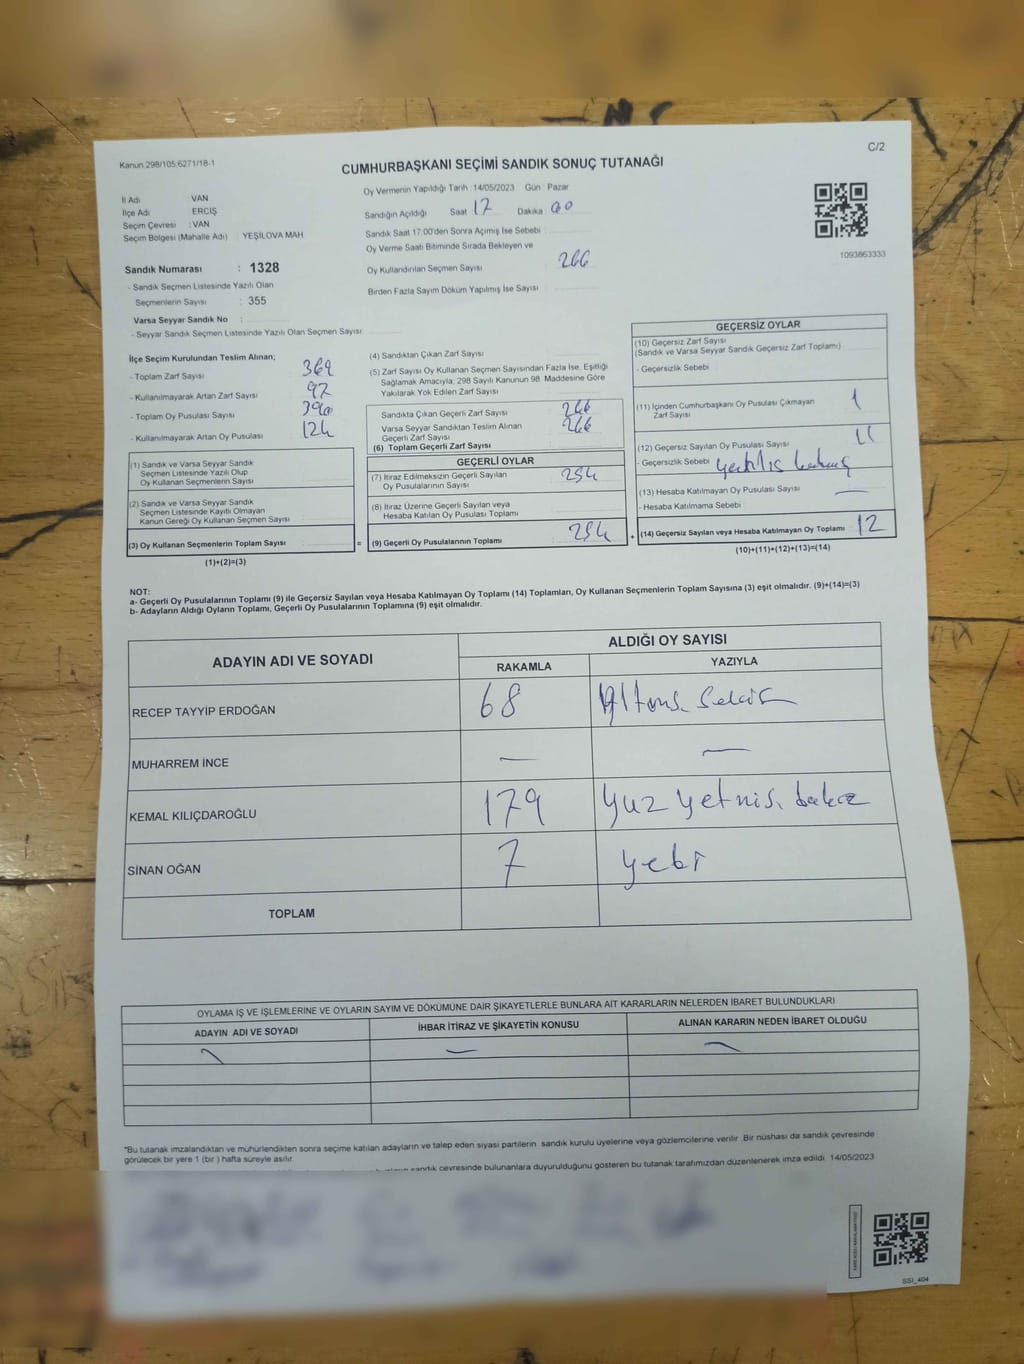 Kanun.298/105.6271/18-1
C/2
CUMHURBAŞKANI SEÇİMİ SANDIK SONUÇ TUTANAĞI
İl Adı VAN
İlçe Adı ERCİŞ
Seçim Çevresi : VAN
Seçim Bölgesi (Mahalle Adı) : YEŞİLOVA MAH
Sandık Numarası : 1328
- Sandık Seçmen Listesinde Yazılı Olan
Seçmenlerin Sayısı : 355
Varsa Seyyar Sandık No :
- Seyyar Sandık Seçmen Listesinde Yazılı Olan Seçmen Sayısı
Oy Vermenin Yapıldığı Tarih :14/05/2023 Gün : Pazar
Sandığın Açıldığı Saat 17 Dakika 00
Sandık Saat 17:00'den Sonra Açımış İse Sebebi :
Oy Verme Saati Bitiminde Sırada Bekleyen ve
Oy Kullandırılan Seçmen Sayısı : 266
Birden Fazla Sayım Döküm Yapılmış İse Sayısı :
1093863333
İlçe Seçim Kurulundan Teslim Alınan;
- Toplam Zarf Sayısı : 369
- Kullanılmayarak Artan Zarf Sayısı : 92
- Toplam Oy Pusulası Sayısı : 390
- Kullanılmayarak Artan Oy Pusulası : 124
(1) Sandık ve Varsa Seyyar Sandık
Seçmen Listesinde Yazılı Olup
Oy Kullanan Seçmenlerin Sayısı
(2) Sandık ve Varsa Seyyar Sandık
Seçmen Listesinde Kayıtlı Olmayan
Kanun Gereği Oy Kullanan Seçmen Sayısı
(3) Oy Kullanan Seçmenlerin Toplam Sayısı
(1)+(2)=(3)
=
(4) Sandıktan Çıkan Zarf Sayısı
(5) Zarf Sayısı Oy Kullanan Seçmen Sayısından Fazla İse, Eşitliği
Sağlamak Amacıyla; 298 Sayılı Kanunun 98. Maddesine Göre
Yakılarak Yok Edilen Zarf Sayısı
Sandıkta Çıkan Geçerli Zarf Sayısı : 266
Varsa Seyyar Sandıktan Teslim Alınan
Geçerli Zarf Sayısı : 266
(6) Toplam Geçerli Zarf Sayısı
GEÇERLİ OYLAR
(7) İtiraz Edilmeksizin Geçerli Sayılan
Oy Pusulalarının Sayısı : 254
(8) İtiraz Üzerine Geçerli Sayılan veya
Hesaba Katılan Oy Pusulası Toplamı :
(9) Geçerli Oy Pusulalarının Toplamı : 254
+
GEÇERSİZ OYLAR
(10) Geçersiz Zarf Sayısı
(Sandık ve Varsa Seyyar Sandık Geçersiz Zarf Toplamı)
- Geçersizlik Sebebi
(11) İçinden Cumhurbaşkanı Oy Pusulası Çıkmayan
Zarf Sayısı 1
(12) Geçersiz Sayılan Oy Pusulası Sayısı 11
- Geçersizlik Sebebi
(13) Hesaba Katılmayan Oy Pusulası Sayısı —
- Hesaba Katılmama Sebebi
(14) Geçersiz Sayılan veya Hesaba Katılmayan Oy Toplamı 12
(10)+(11)+(12)+(13)=(14)
NOT:
a- Geçerli Oy Pusulalarının Toplamı (9) ile Geçersiz Sayılan veya Hesaba Katılmayan Oy Toplamı (14) Toplamları, Oy Kullanan Seçmenlerin Toplam Sayısına (3) eşit olmalıdır. (9)+(14)=(3)
b- Adayların Aldığı Oyların Toplamı, Geçerli Oy Pusulalarının Toplamına (9) eşit olmalıdır.
ADAYIN ADI VE SOYADI
ALDIĞI OY SAYISI
RAKAMLA YAZIYLA
RECEP TAYYİP ERDOĞAN 68 Altmış Sekiz
MUHARREM İNCE — —
KEMAL KILIÇDAROĞLU 179 Yuz yetmiş dokuz
SİNAN OĞAN 7 yedi
TOPLAM
OYLAMA İŞ VE İŞLEMLERİNE VE OYLARIN SAYIM VE DÖKÜMÜNE DAİR ŞİKAYETLERLE BUNLARA AİT KARARLARIN NELERDEN İBARET BULUNDUKLARI
ADAYIN ADI VE SOYADI İHBAR İTİRAZ VE ŞİKAYETİN KONUSU ALINAN KARARIN NEDEN İBARET OLDUĞU
*Bu tutanak imzalandıktan ve mühürlendikten sonra seçime katılan adayların ve talep eden siyasi partilerin sandık kurulu üyelerine veya gözlemcilerine verilir. Bir nüshası da sandık çevresinde
görülecek bir yere 1 (bir ) hafta süreyle asılır.
sandık çevresinde bulunanlara duyurulduğunu gösteren bu tutanak tarafımızdan düzenlenerek imza edildi. 14/05/2023
SSI_404